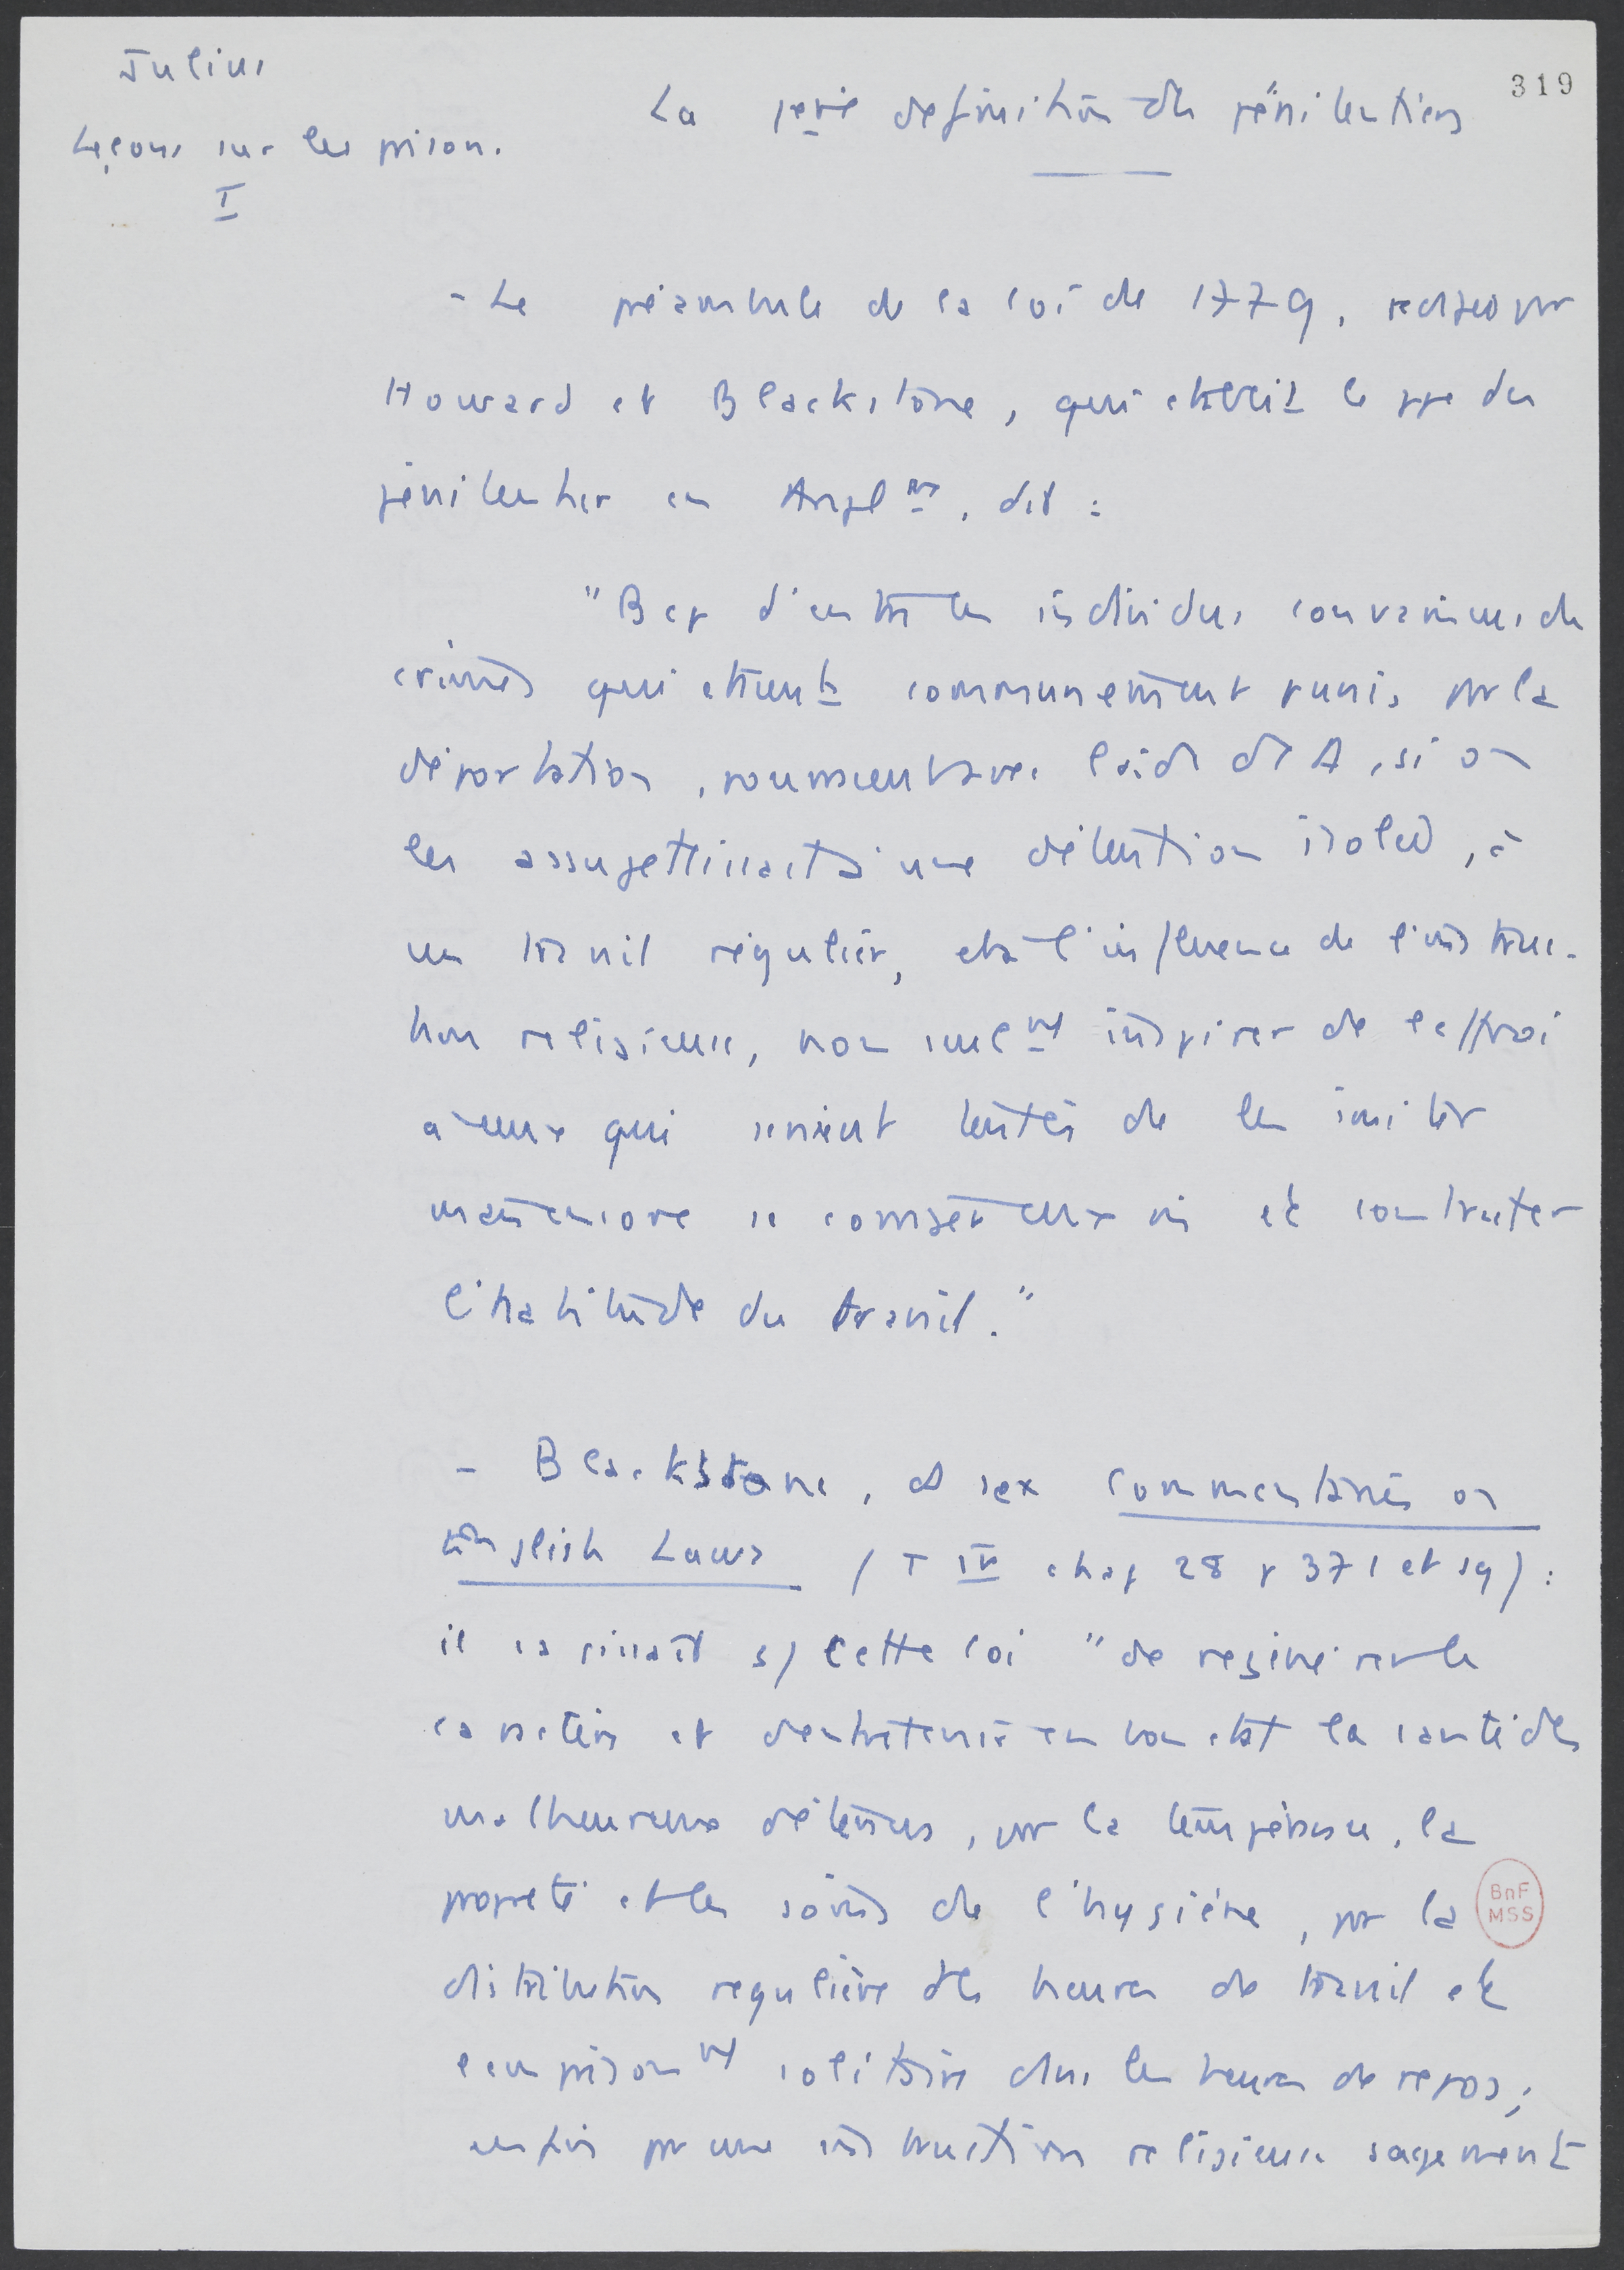 Julius
Leçons sur les prisons.
I
319
La 1ère définition du pénitentiers
- Le préambule de la loi de 1779, rédigé par
Howard et Blackstone, qui établit le ppe du
pénitentier en Anglre, dit :
"Bcp d'entre les individus convaincus de
crimes qui étaient communément punis par la
déportation, pourraient avec l'aide de D, si on
les assujettissait à une détention isolée, à
un travail régulier, et à l'influence de l'instruc-
tion religieuse, non seult inspirer de l'effroi
à ceux qui seraient tentés de les imiter
mais encore se corriger eux-m et contracter
l'habitude du travail."
- Blackstone, ds ses Commentaries on
English Laws (T IV chap 28 p 371 et sq) :
il s'agissait ds cette loi "de régénérer les
caractères et d'entretenir en bon état la santé des
malheureux détenus, par la tempérance, la
propreté et les soins de l'hygiène, par la
distribution régulière des heures de travail et
l'emprisont solitaire dans les heures de repos;
enfin par une instruction religieuse sagement
BnF
MSS